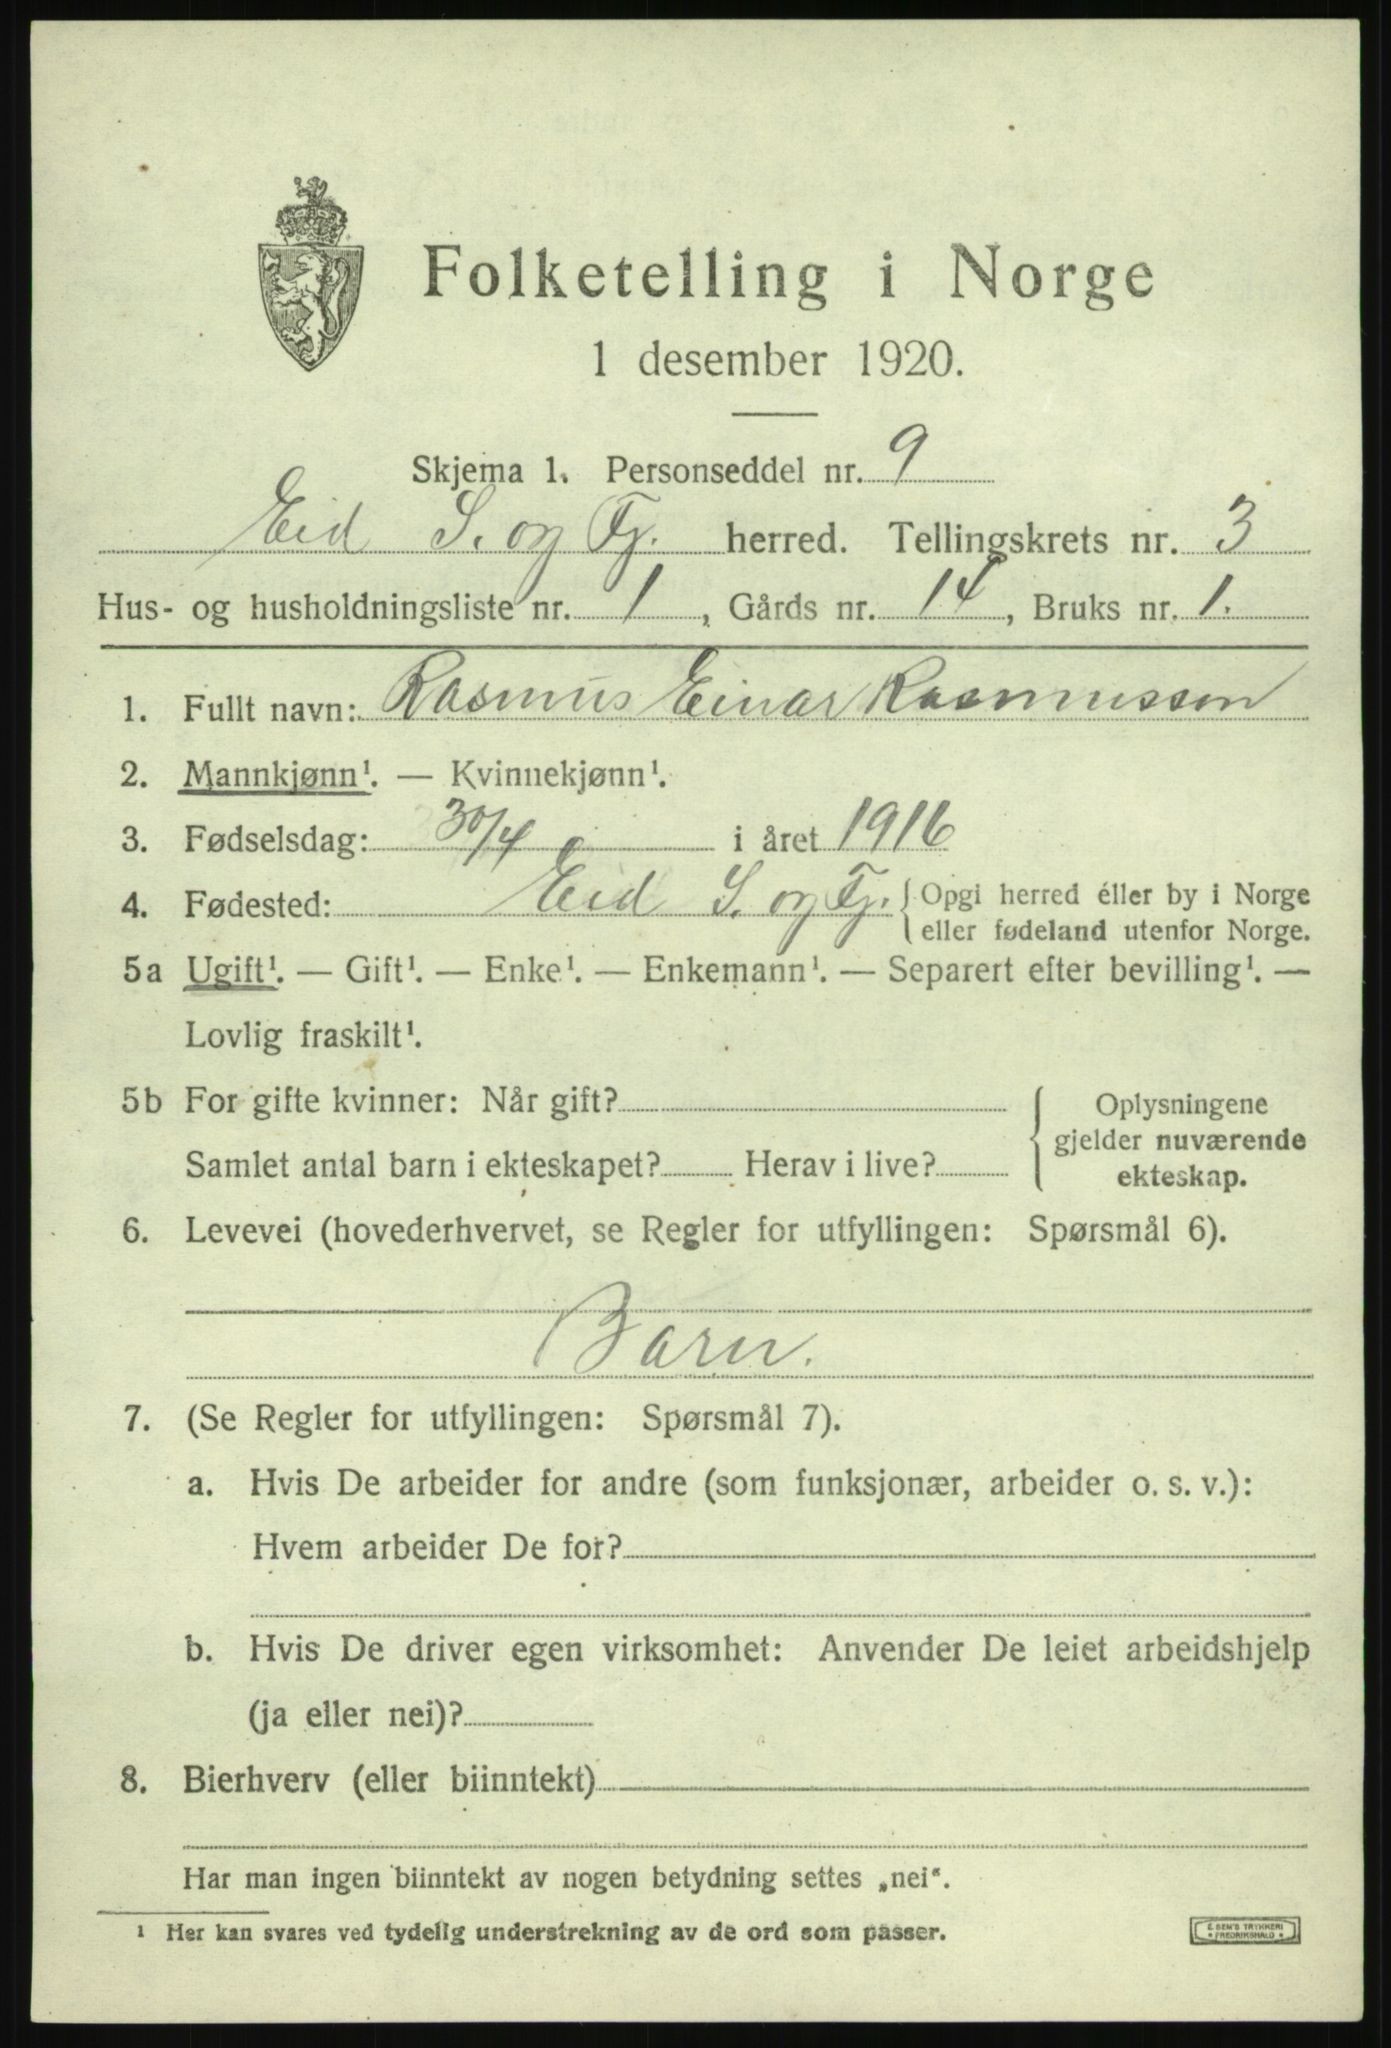 Folketelling i Norge
1 desember 1920.
Skjema 1. Personseddel nr. 9
Eid S. og Fj. herred. Tellingskrets nr. 3
Hus- og husholdningsliste nr. 1, Gårds nr. 14, Bruks nr. 1.
1. Fullt navn: Rasmus Einar Rasmussen
2. Mannkjønn¹. — Kvinnekjønn¹.
3. Fødselsdag: 30/4 i året 1916
4. Fødested: Eid S. og Fj. { Opgi herred eller by i Norge
eller fødeland utenfor Norge.
5a Ugift¹. — Gift¹. — Enke¹. — Enkemann¹. — Separert efter bevilling¹. —
Lovlig fraskilt¹.
5b For gifte kvinner: Når gift?
Samlet antal barn i ekteskapet? Herav i live?
Oplysningene
gjelder nuværende
ekteskap.
6. Levevei (hovederhvervet, se Regler for utfyllingen: Spørsmål 6).
Barn.
7. (Se Regler for utfyllingen: Spørsmål 7).
a. Hvis De arbeider for andre (som funksjonær, arbeider o. s. v.):
Hvem arbeider De for?
b. Hvis De driver egen virksomhet: Anvender De leiet arbeidshjelp
(ja eller nei)?
8. Bierhverv (eller biinntekt)
Har man ingen biinntekt av nogen betydning settes „nei“.
¹ Her kan svares ved tydelig understrekning av de ord som passer.
E. SEM'S TRYKKERI
* FREDRIKSHALD *